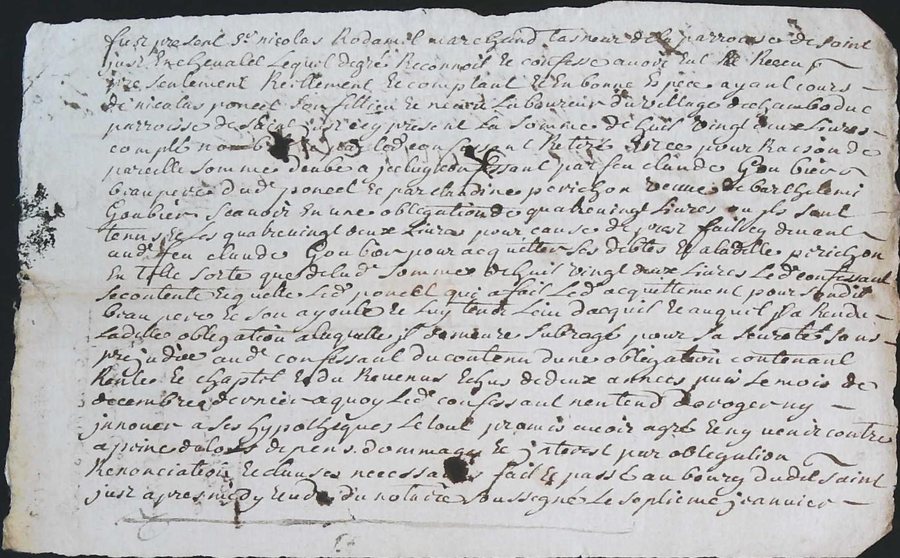 fust present Sr nicolas Rodamel marchand tasneur de la parroisse de Saint
just En chevalet Lequel de gré Reconnoit Et confesse avoir Eut Et Receu
presentement Reellement Et comptant Et En bonne Espece ayant cours
de nicolas poncet son fillieu Et neveu Laboureur du village de chamboduc
parroisse de Saint just icy present La somme de huit vingt deux Livres
compté nombré Led confessant Retiré pour Raison de
pareille somme deube a jceluy confessant par feu claude Goubier
beau pere dud poncet Et par claudine perichon veuve de barthelemi
Goubier Scavoir En une obligation de quatre vingt Livres ou ils sont
tenus Et Les quatre vingt deux Livres pour cause de prest fait cy devant
aud feu claude Goubier pour acquitter ses debtes Et a ladite perichon
En telle sorte que de lad somme de huit vingt deux Livres Led confessant
se contente Et quitte Led poncet qui a fait Led acquittement pour sondit
beau pere Et son ayoule Et Luy tenir Lieu d'acquit Et auquel il a Rendu
Ladite obligation a laquelle il demeure subrogé pour sa seureté sans
prejudice aud confessant du contenu d'une obligation contenant
Rente Et chaptel Et du Revenus Echus de deux années puis Le mois de
decembre dernier a quoy Led confessant n'entend deroger ny
jnnover a ses hypotheques Le tout promis avoir agré Et ny venir contre
a peine de tous depens dommages Et jnterest par obligation
Renonciation Et clauses necessaires fait Et passé au bourg dudit Saint
just apres midy du notaire soussigné Le septieme jeanvier